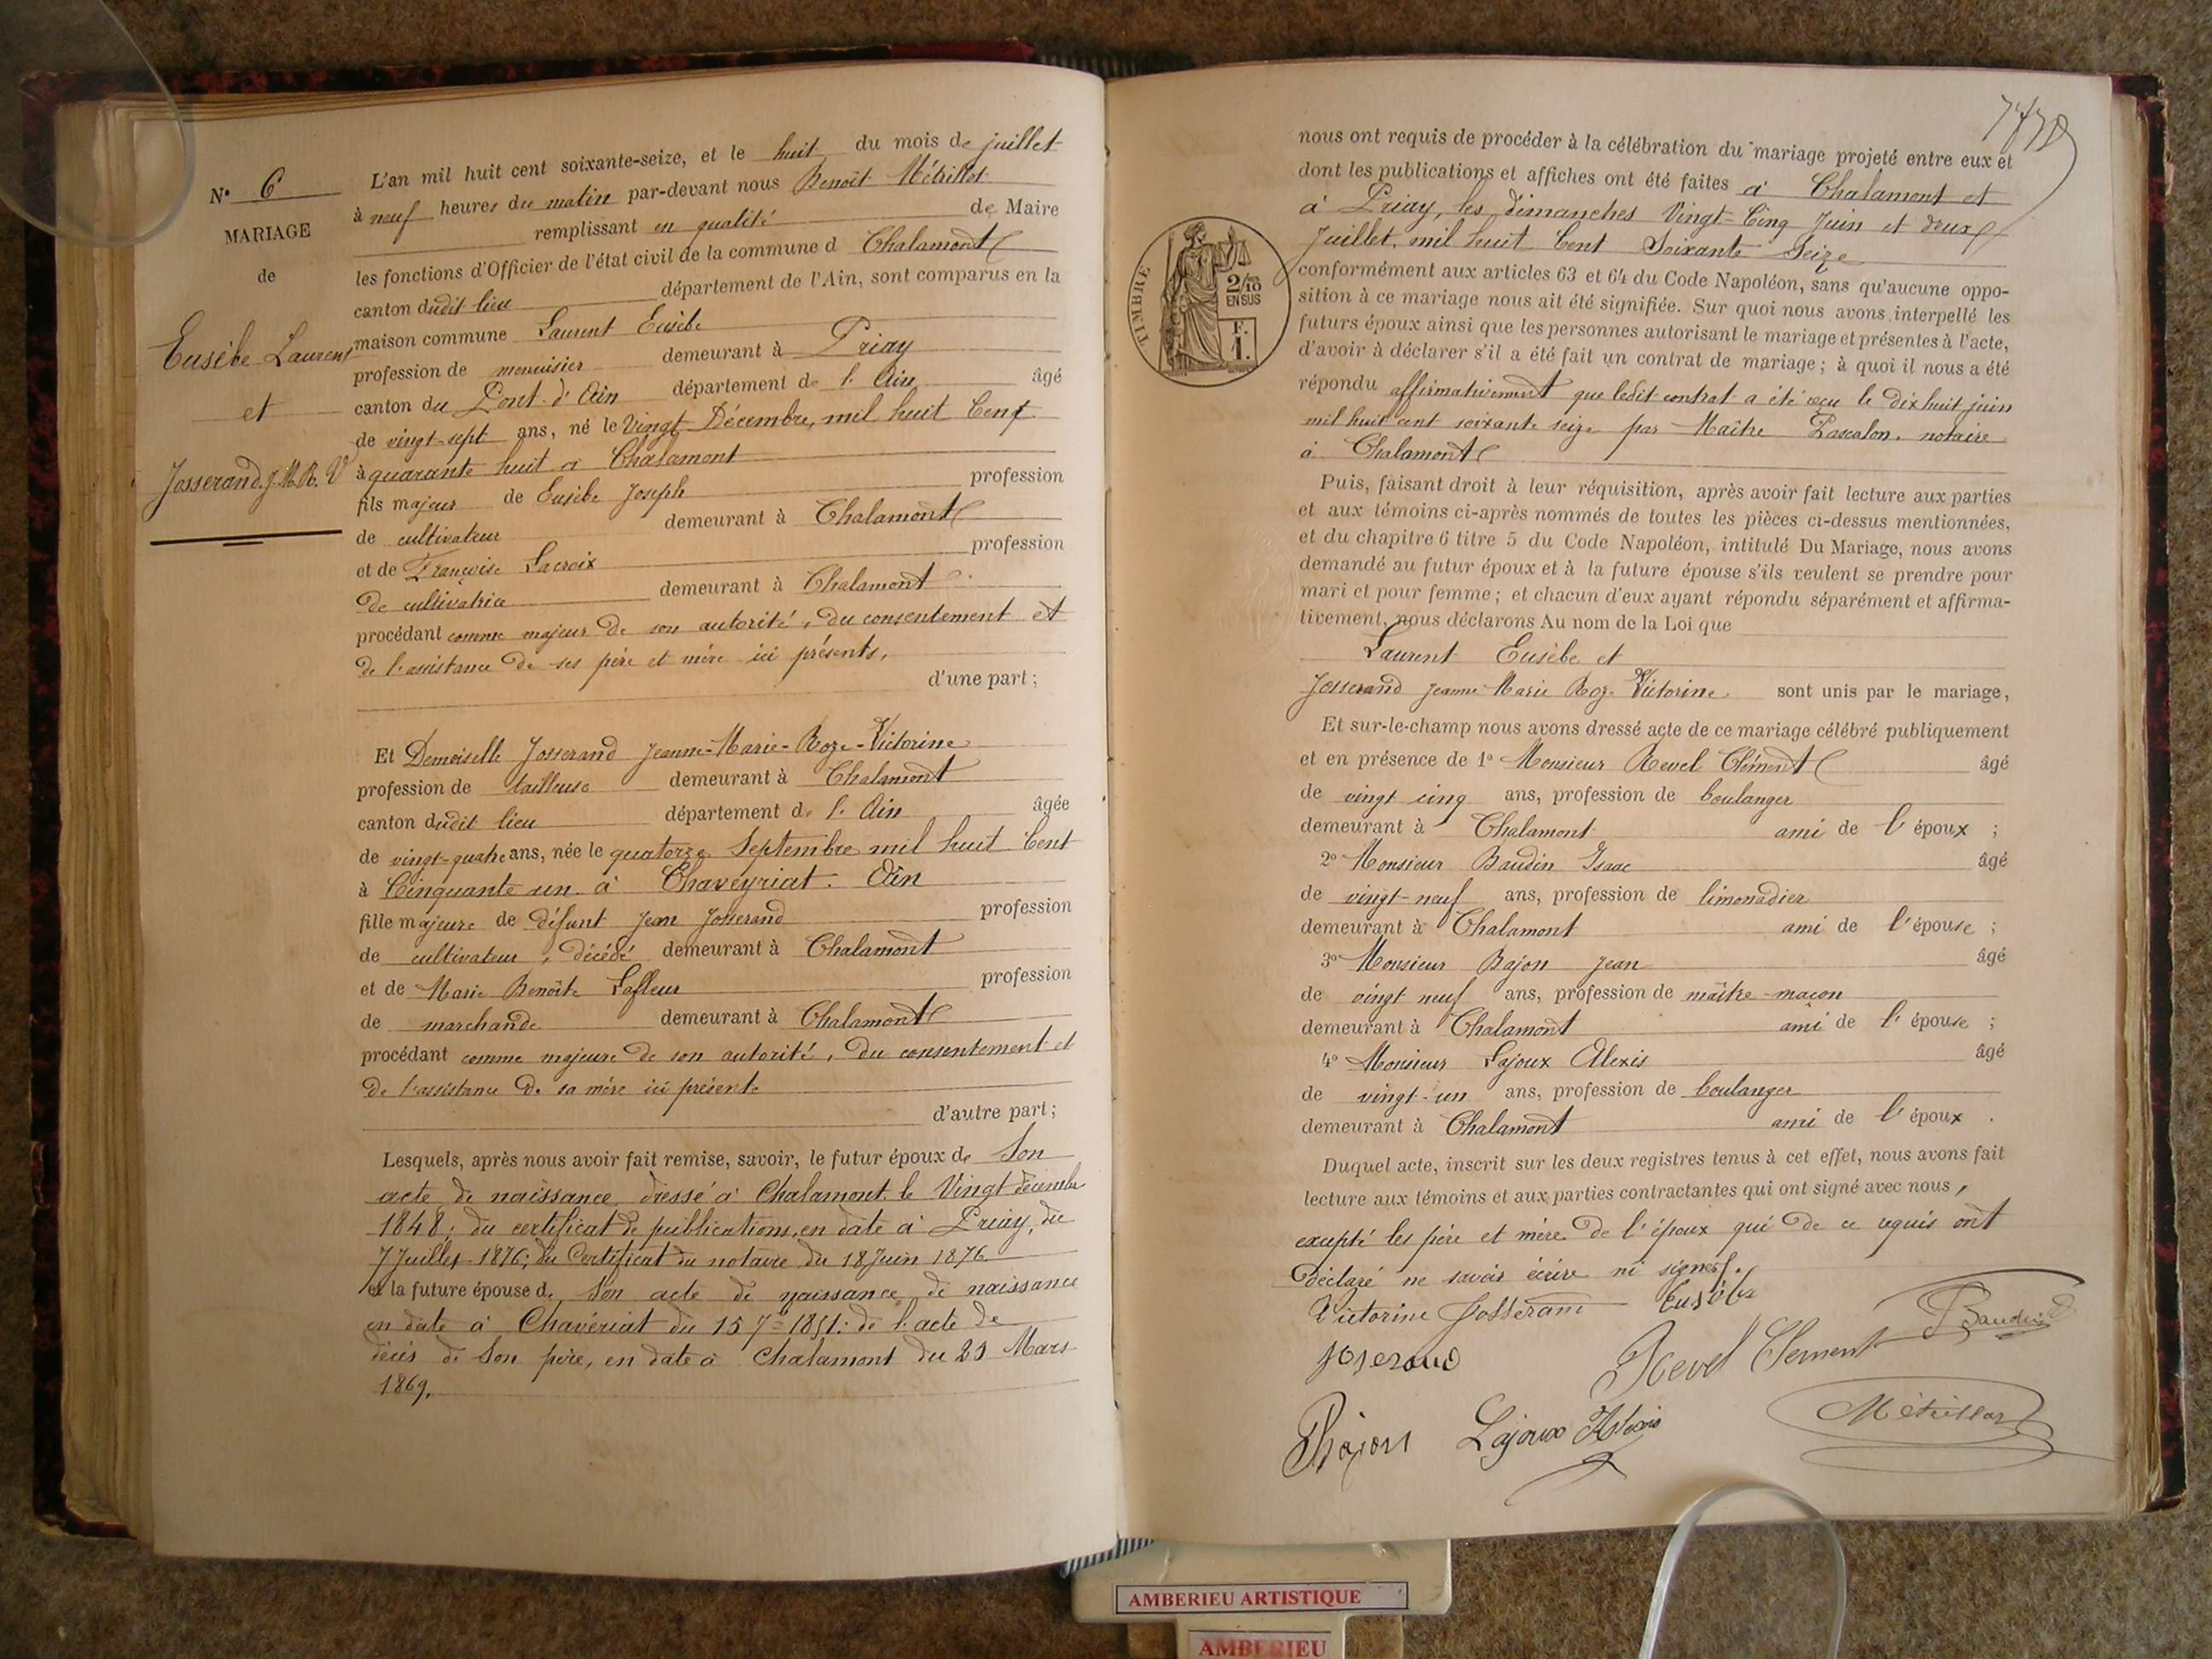 N° 6
MARIAGE
de
Eusèbe Laurent
et
Josserand. J. M. R. V
L'an mil huit cent soixante-seize, et le huit du mois de juillet
à neuf heures du matin par-devant nous Benoît Métrillot
remplissant en qualité de Maire
les fonctions d'Officier de l'état civil de la commune d Chalamont
canton dudit lieu département de l'Ain, sont comparus en la
maison commune Laurent Eusèbe
profession de menuisier demeurant à Priay
canton du Pont-d'Ain département de l'Ain âgé
de vingt-sept ans, né le Vingt Décembre, mil huit Cent
à quarante huit à Chalamont
fils majeur de Eusèbe Joseph profession
de cultivateur demeurant à Chalamont
et de Françoise Lacroix profession
de cultivatrice demeurant à Chalamont
procédant comme majeur de son autorité, du consentement et
de l'assistance de ses père et mère ici présents,
d'une part;
Et Demoiselle Josserand Jeanne-Marie-Roze-Victorine
profession de tailleuse demeurant à Chalamont
canton dudit lieu département de l'Ain âgée
de vingt-quatre ans, née le quatorze Septembre mil huit Cent
à Cinquante un à Chaveyriat. Ain
fille majeure de défunt Jean Josserand profession
de cultivateur, décédé demeurant à Chalamont
et de Marie Benoîte Lafleur profession
de marchande demeurant à Chalamont
procédant comme majeure de son autorité, du consentement et
de l'assistance de sa mère ici présente
d'autre part;
Lesquels, après nous avoir fait remise, savoir, le futur époux de Son
acte de naissance dressé à Chalamont le Vingt décembre
1848; du certificat de publications, en date à Priay, du
7 Juillet 1876; du Certificat du notaire du 18 Juin 1876
et la future épouse de Son acte de naissance de naissance
en date à Chavériat du 15 7bre 1851: de l'acte de
décès de Son père, en date à Chalamont du 23 Mars
1869.
nous ont requis de procéder à la célébration du mariage projeté entre eux et
dont les publications et affiches ont été faites à Chalamont et
à Priay, les dimanches Vingt-Cinq Juin et deux
Juillet, mil huit Cent Soixante Seize
TIMBRE
2/10
EN SUS
F.
1.
conformément aux articles 63 et 64 du Code Napoléon, sans qu'aucune oppo-
sition à ce mariage nous ait été signifiée. Sur quoi nous avons interpellé les
futurs époux ainsi que les personnes autorisant le mariage et présentes à l'acte,
d'avoir à déclarer s'il a été fait un contrat de mariage; à quoi il nous a été
répondu affirmativement que ledit contrat a été reçu le dix huit juin
mil huit cent soixante seize par Maître Pascalon, notaire
à Chalamont
Puis, faisant droit à leur réquisition, après avoir fait lecture aux parties
et aux témoins ci-après nommés de toutes les pièces ci-dessus mentionnées,
et du chapitre 6 titre 5 du Code Napoléon, intitulé Du Mariage, nous avons
demandé au futur époux et à la future épouse s'ils veulent se prendre pour
mari et pour femme; et chacun d'eux ayant répondu séparément et affirma-
tivement, nous déclarons Au nom de la Loi que
Laurent Eusèbe et
Josserand Jeanne Marie Roze Victorine sont unis par le mariage,
Et sur-le-champ nous avons dressé acte de ce mariage célébré publiquement
et en présence de 1° Monsieur Revel Clément âgé
de vingt cinq ans, profession de boulanger
demeurant à Chalamont ami de l'époux ;
2° Monsieur Baudin Isaac âgé
de vingt-neuf ans, profession de limonadier
demeurant à Chalamont ami de l'épouse ;
3° Monsieur Bajon Jean âgé
de vingt neuf ans, profession de maître-maçon
demeurant à Chalamont ami de l'épouse ;
4° Monsieur Lajoux Alexis âgé
de vingt-un ans, profession de boulanger
demeurant à Chalamont ami de l'époux .
Duquel acte, inscrit sur les deux registres tenus à cet effet, nous avons fait
lecture aux témoins et aux parties contractantes qui ont signé avec nous,
excepté les père et mère de l'époux qui de ce requis ont
déclaré ne savoir écrire ni signer.
Victorine Josserand Eusèbe
Baudin
Joserand Revel Clement
Bajon Lajoux Alexis Métrillot
AMBERIEU ARTISTIQUE
AMBERIEU